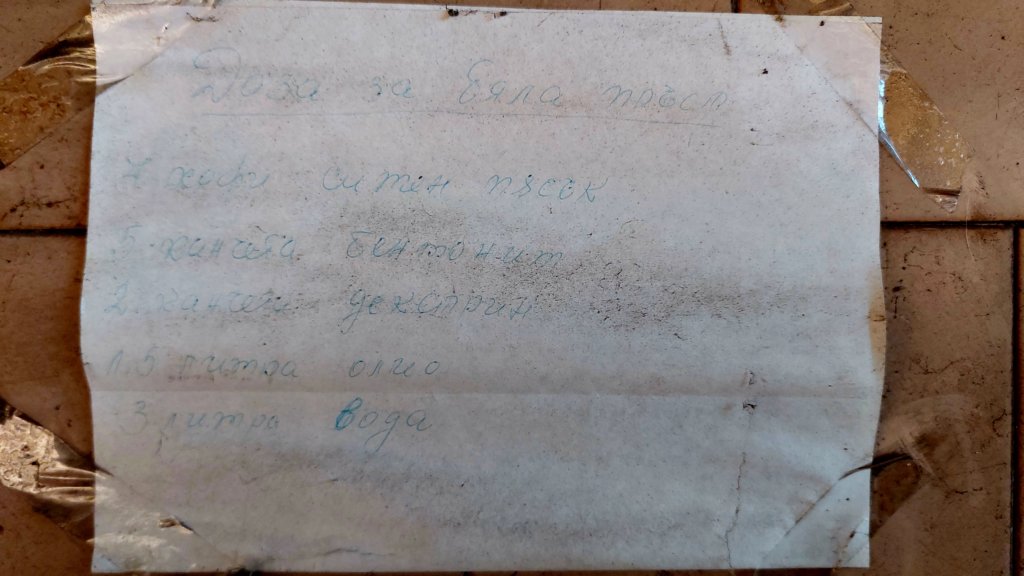 Доза за бяла пръст
4 кофи ситен пясък
5 канчета бентонит
2 канчета декстрин
1.5 литра олио
3 литра вода